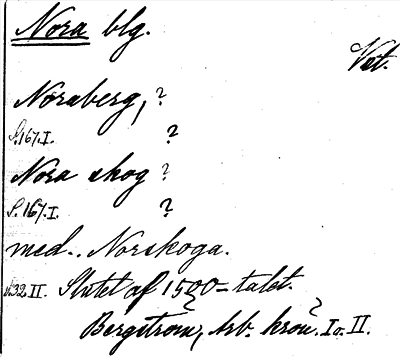 Nora blg.
Vst.
Noraberg, ?
S. 167. I. ?
Nora skog ?
S. 167. I. ?
med.. Norskoga.
s. 32. II. Slutet af 1500-talet.
Bergstrom, Arb. kron. Io. II.